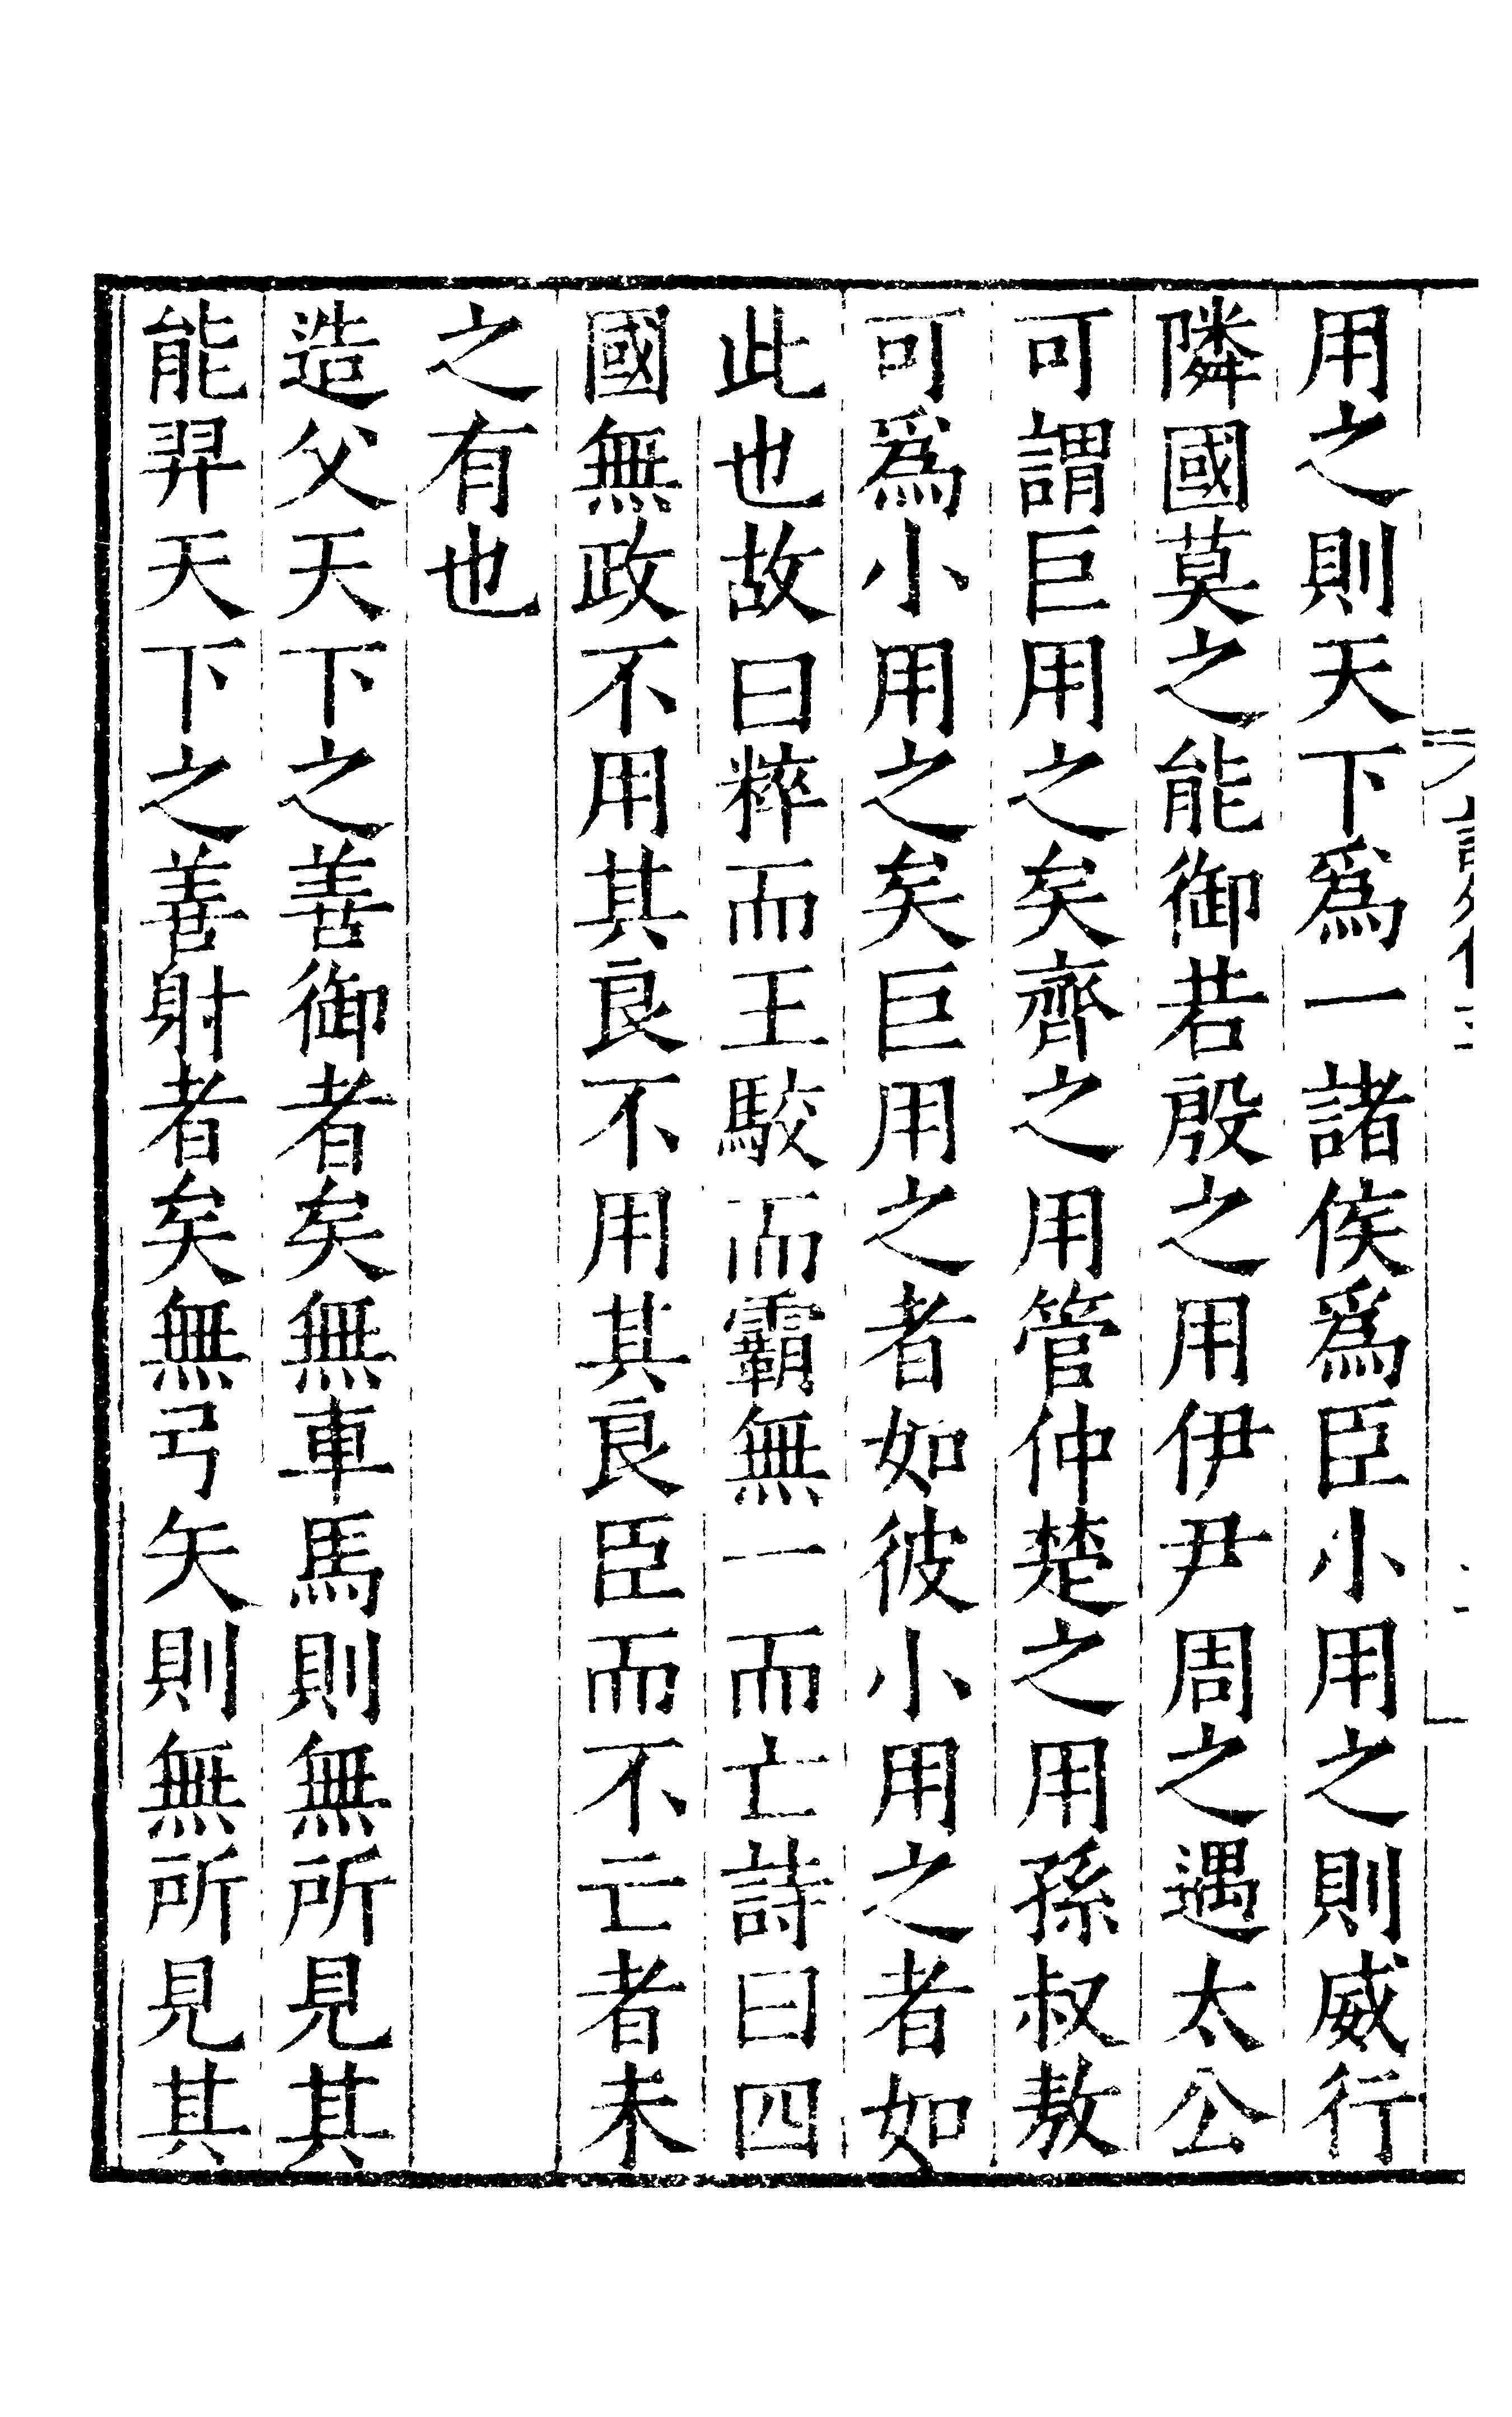 用之則天下爲一諸侯爲臣小用之則威行
隣國莫之能御若殷之用伊尹周之遇太公
可謂巨用之矣齊之用管仲楚之用孫叔敖
可爲小用之矣巨用之者如彼小用之者如
此也故曰粹而王駮而霸無一而亡詩曰四
國無政不用其良不用其良臣而不亡者未
之有也
造父天下之善御者矣無車馬則無所見其
能羿天下之善射者矣無弓矢則無所見其